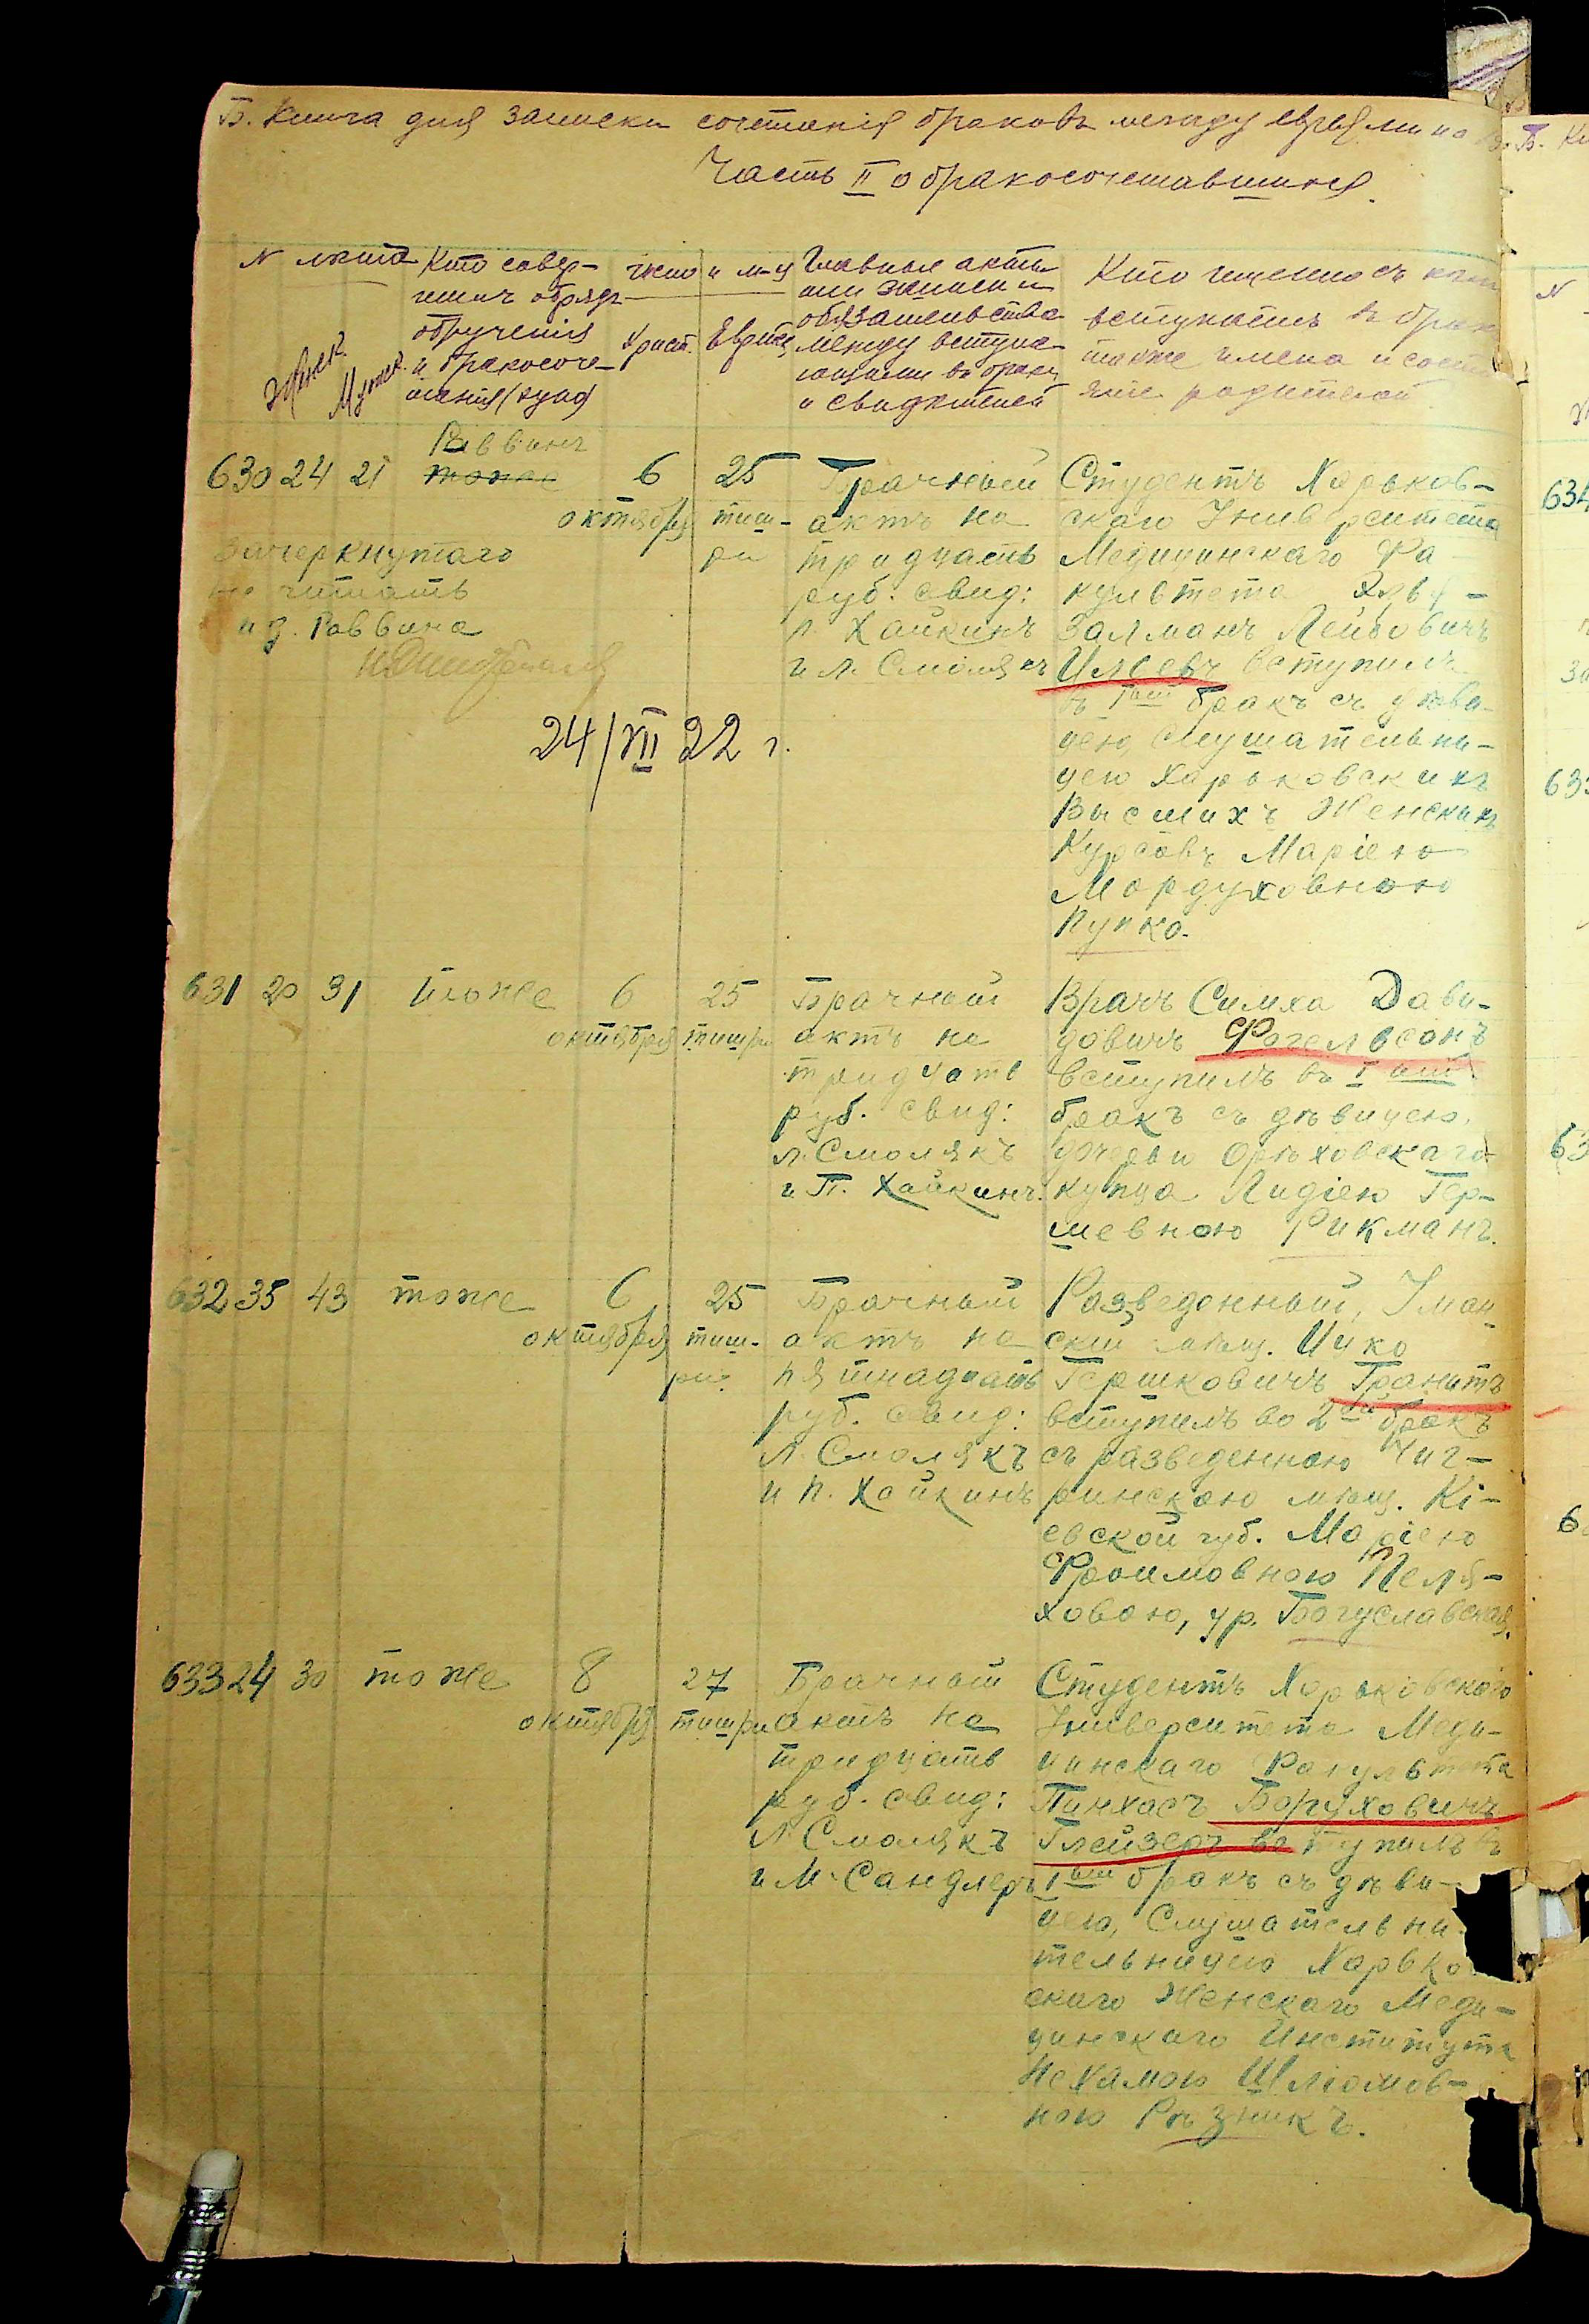 Б. Книга для записки сочетанія браковъ между евреями на
Часть II о бракосочетавшихся.
N акта
Женск.
Мужск.
Кто совер-
шилъ обрядъ
обрученія
и бракосоче-
танія (хупа)
число и м-ц
Христ. Еврейск.
Главные акты
или записи и
обязательства
между вступа-
ющими въ бракъ
и свидѣтелей
Кто именно съ кѣмъ
вступаетъ въ бракъ
также имена и состо
яніе родителей
630 24 21
Раввинъ
тоже
зачеркнутаго
не читать
и д. Раввина
6
октября
25
тиш-
ри
Брачный
актъ на
тридцать
руб. свид:
П. Хайкинъ
и Л. Смолякъ
Студентъ Харьков-
скаго Университета
Медицинскаго Фа
культета
Залманъ Лейбовичъ
вступилъ
въ Iый бракъ съ дѣви-
цею, слушательни-
цею Харьковскихъ
Высшихъ Женскихъ
Курсовъ Маріею
Мордуховною
Пупко.
24/VII 22 г.
631 20 31 тоже
6
октября
25
тишри
Брачный
актъ на
тридцать
руб. свид:
Л. Смолякъ
и П. Хайкинъ.
Врачъ Симха Дави-
довичъ Фогельсонъ
вступилъ въ Iый
бракъ съ дѣвицею,
дочерью Орѣховскаго
купца Лидіею Гер-
шевною Рикманъ.
632 35 43 тоже
6
октября
25
тиш-
ри.
Брачный
актъ на
пятнадцать
руб. свид:
Л. Смолякъ
и П. Хайкинъ
Разведенный, Уман-
скій мѣщ. Ицко
Гершковичъ Гранитъ
вступилъ во 2ой бракъ
съ разведенною Чиг-
ринскою мѣщ. Кі-
евской губ. Маріею
Фроимовною Пеля-
ховою, ур. Богуславская.
633 24 30 тоже
8
октября
27
тишри
Брачный
актъ на
тридцать
руб. свид:
Л. Смолякъ
и М. Сандлеръ
Студентъ Харьковскаго
Университета Меди-
цинскаго Факультета
Пинхасъ Боруховичъ
Глейзеръ вступилъ въ
Iый бракъ съ дѣви-
цею, Слушательни-
тельницею Харьков
скаго Женскаго Меди-
цинскаго Института
Нехамою Шліомов-
ною Рѣзникъ.